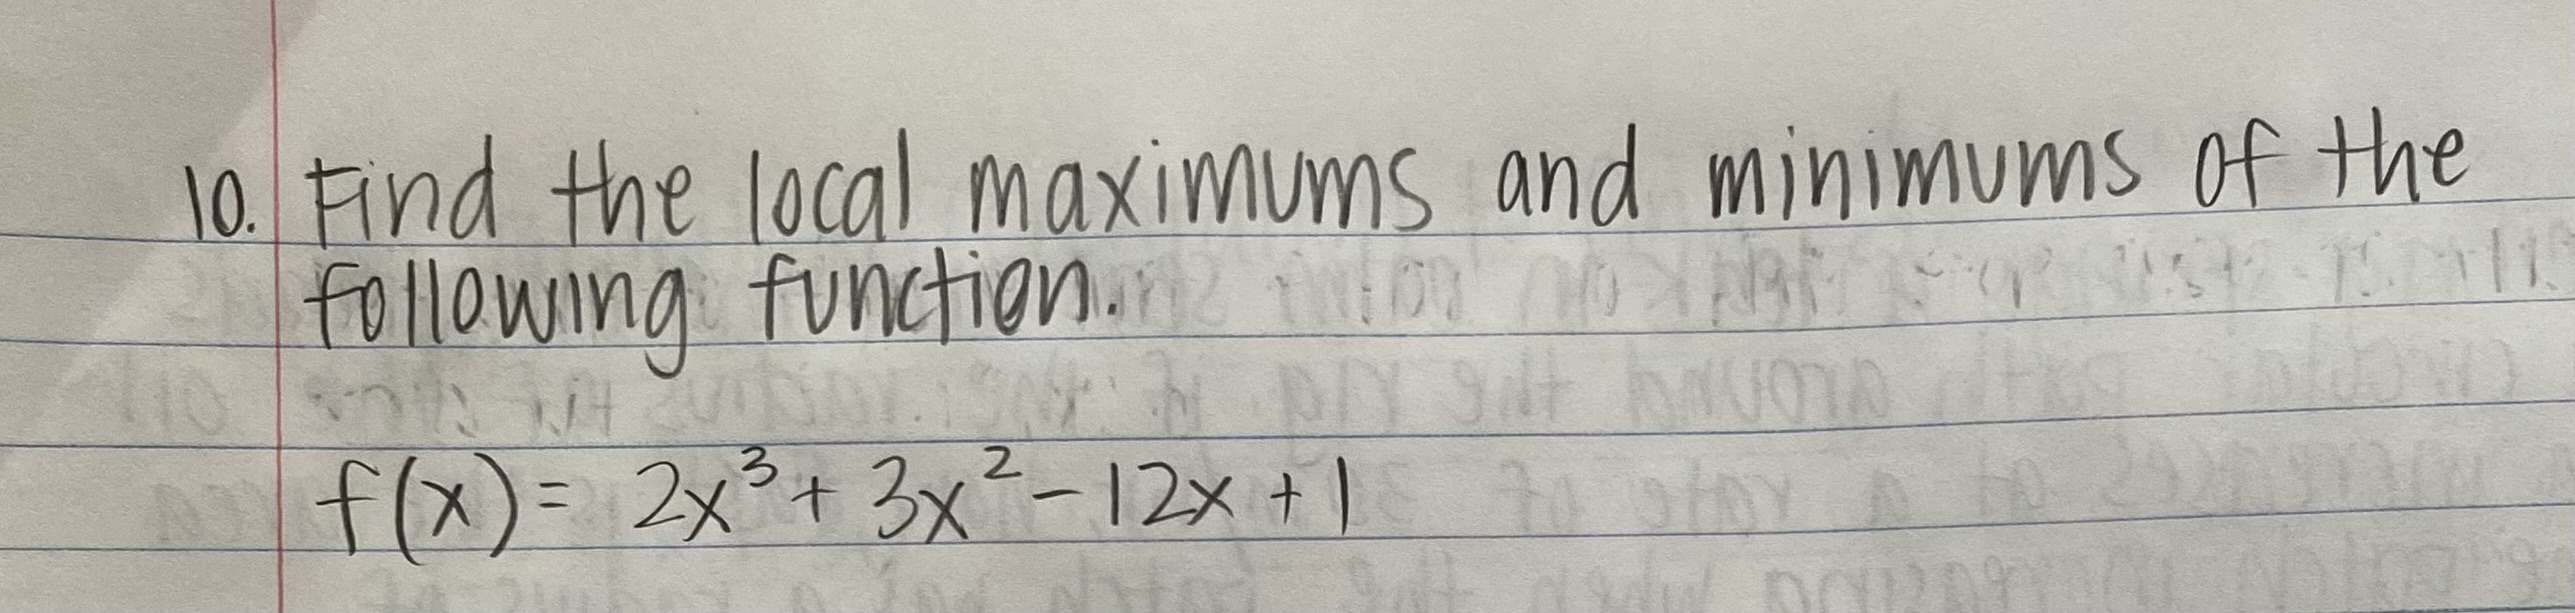 10. Find the local maximums and minimums of the
following function.
f(x) = 2x³ + 3x² - 12x + 1